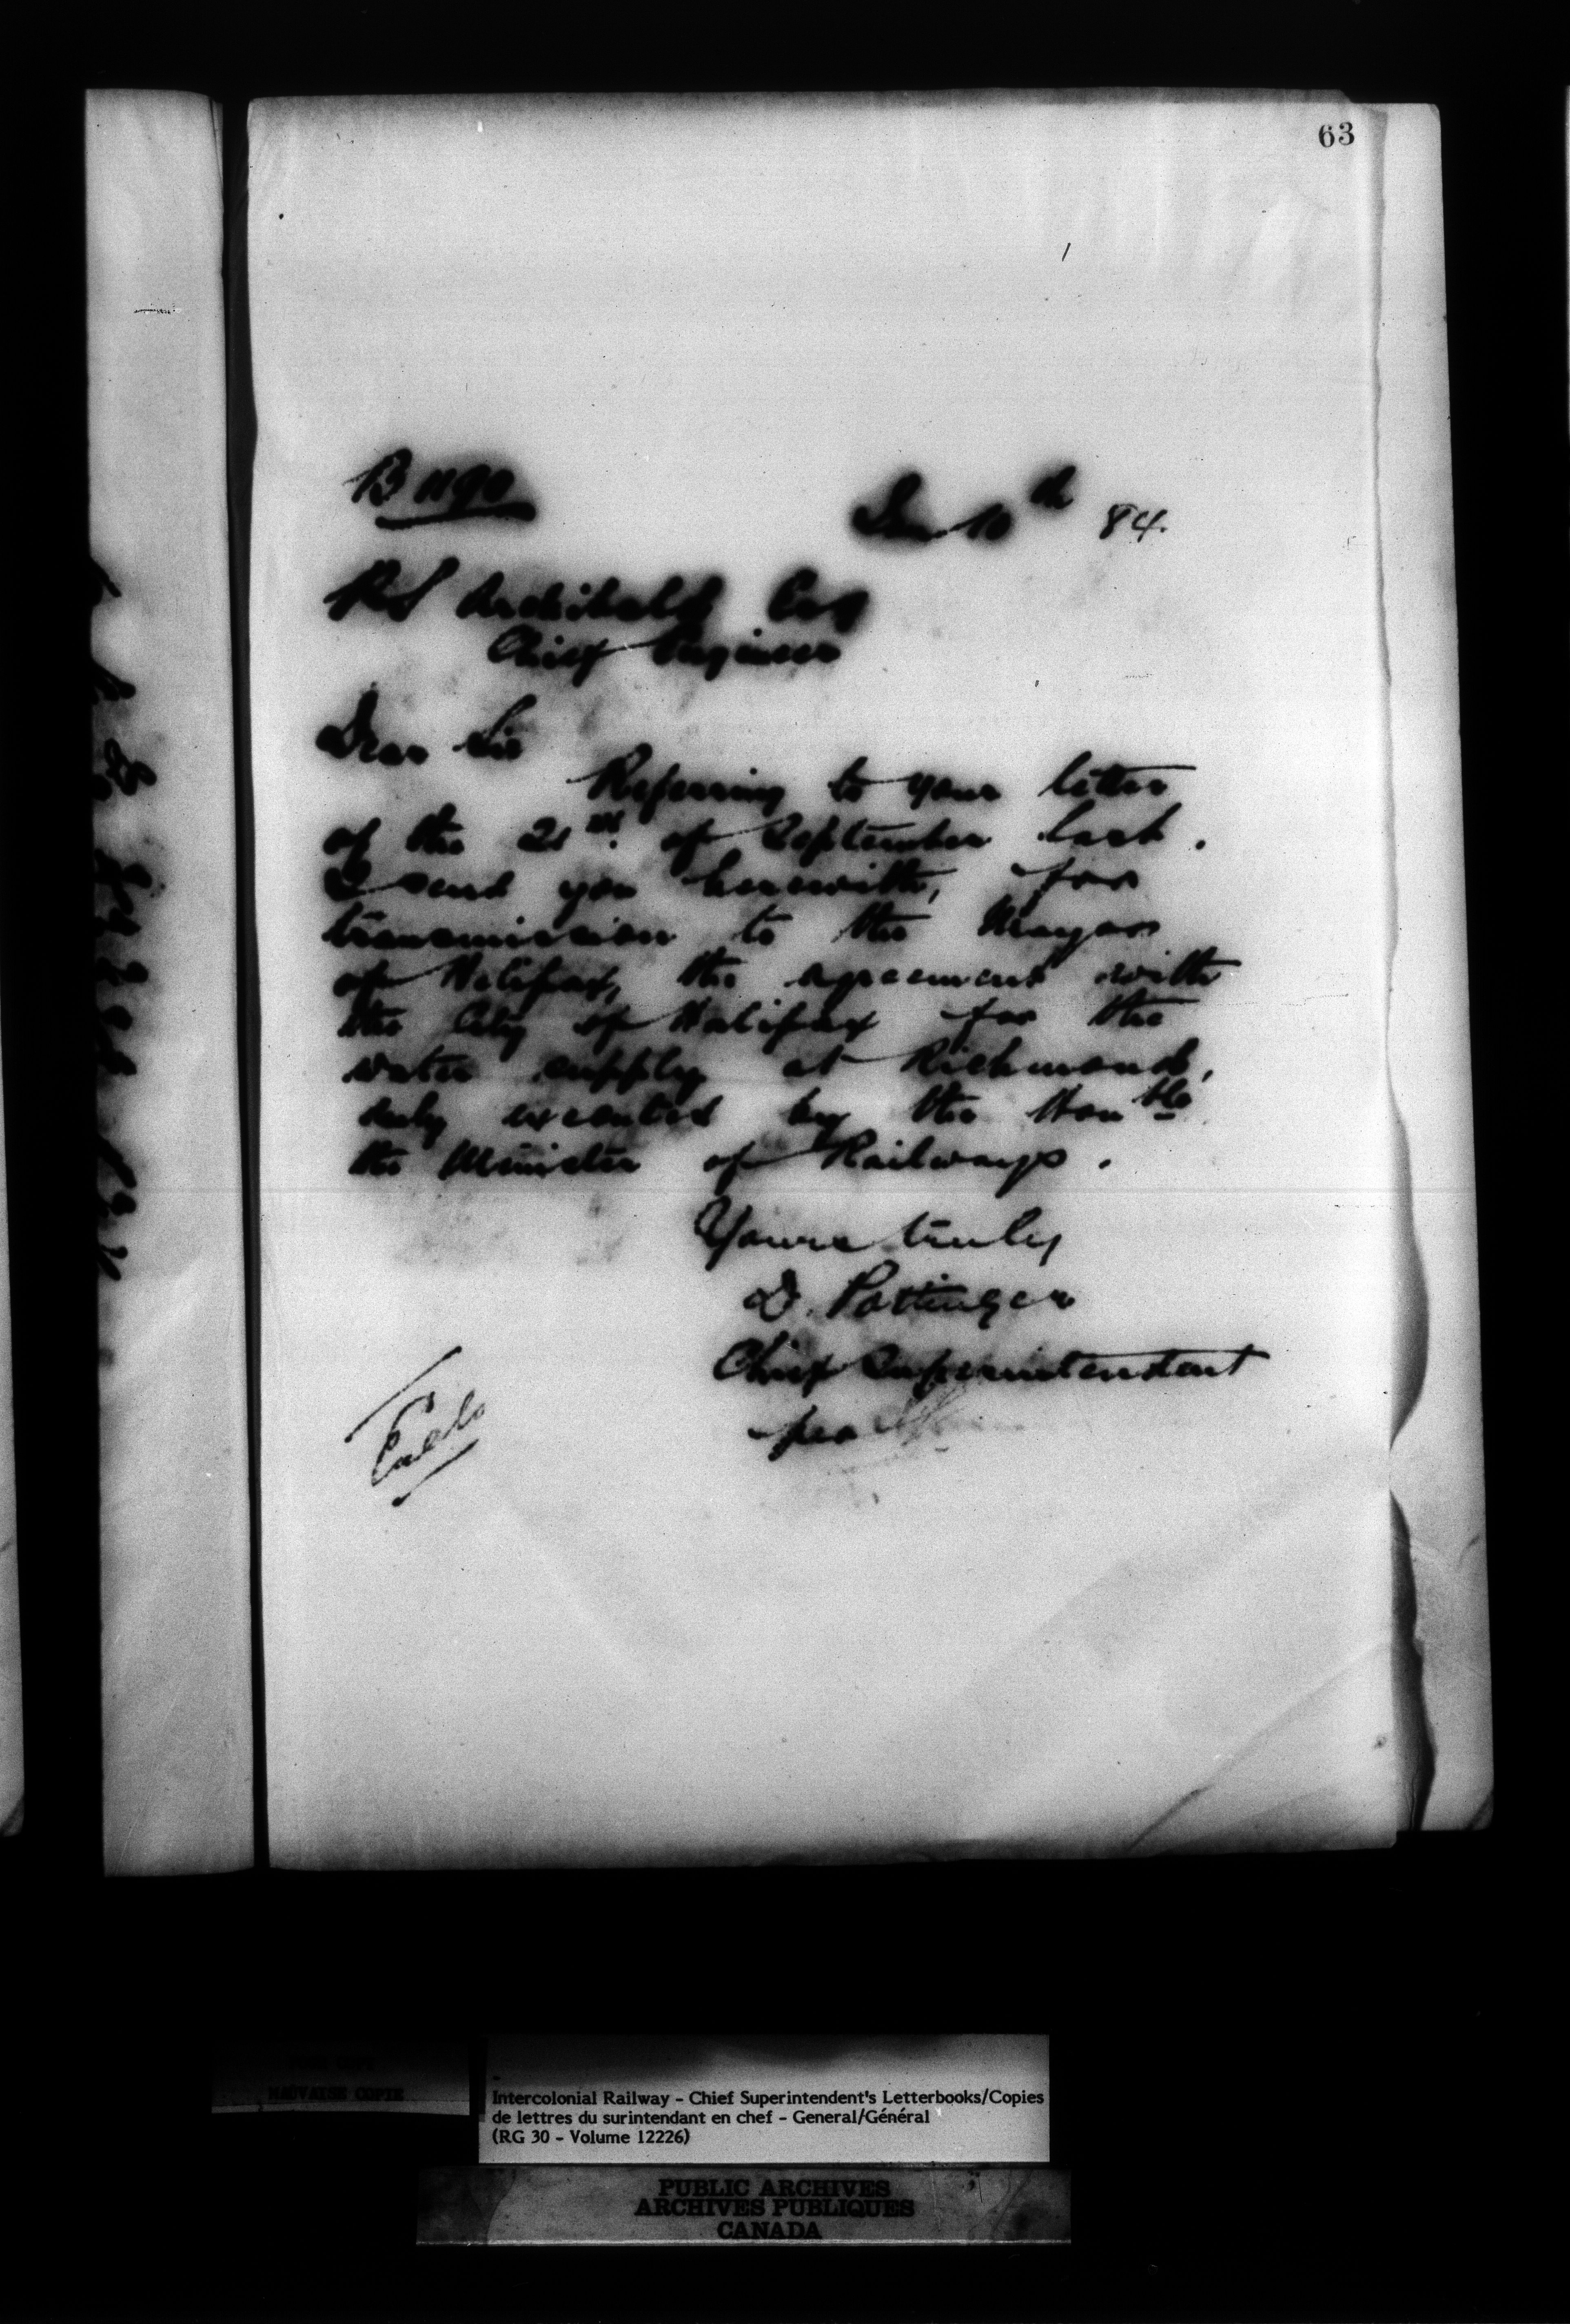 63
B 1190
10th 84.
P S Archibald Esq
Chief Engineer
Dear Sir
Referring to your letter
of the 21st. of September last.
I send you herewith, for
transmission to the Mayor
of Halifax, the agreement with
the City of Halifax for the
water supply at Richmond,
duly executed by the Honble
the Minister of Railways.
Yours truly
D. Pottinger
Chief Superintendent
per
Enclo
MAUVAISE COPIE
Intercolonial Railway - Chief Superintendent's Letterbooks/Copies
de lettres du surintendant en chef - General/Général
(RG 30 - Volume 12226)
PUBLIC ARCHIVES
ARCHIVES PUBLIQUES
CANADA